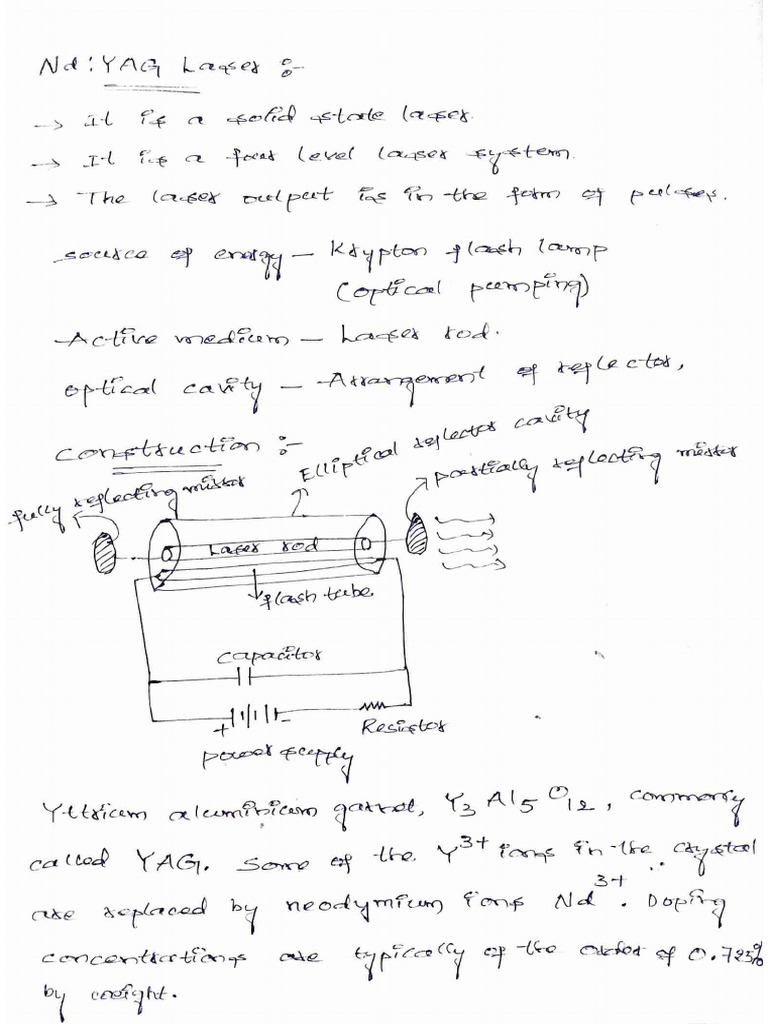 Nd:YAG Laser :-
→ It is a solid state laser.
→ It is a four level laser system.
→ The laser output is in the form of pulses.
source of energy – Krypton flash lamp
(optical pumping)
Active medium – Laser rod.
optical cavity – Arrangement of reflector,
Construction :-
Elliptical reflector cavity
fully reflecting mirror
partially reflecting mirror
Laser rod
flash tube
capacitor
+ -
Resistor
power supply
Yttrium aluminium garnet, Y3 Al5 O12, commonly
called YAG. Some of the Y3+ ions in the crystal
are replaced by neodymium ions Nd3+. Doping
concentrations are typically of the order of 0.725%
by weight.